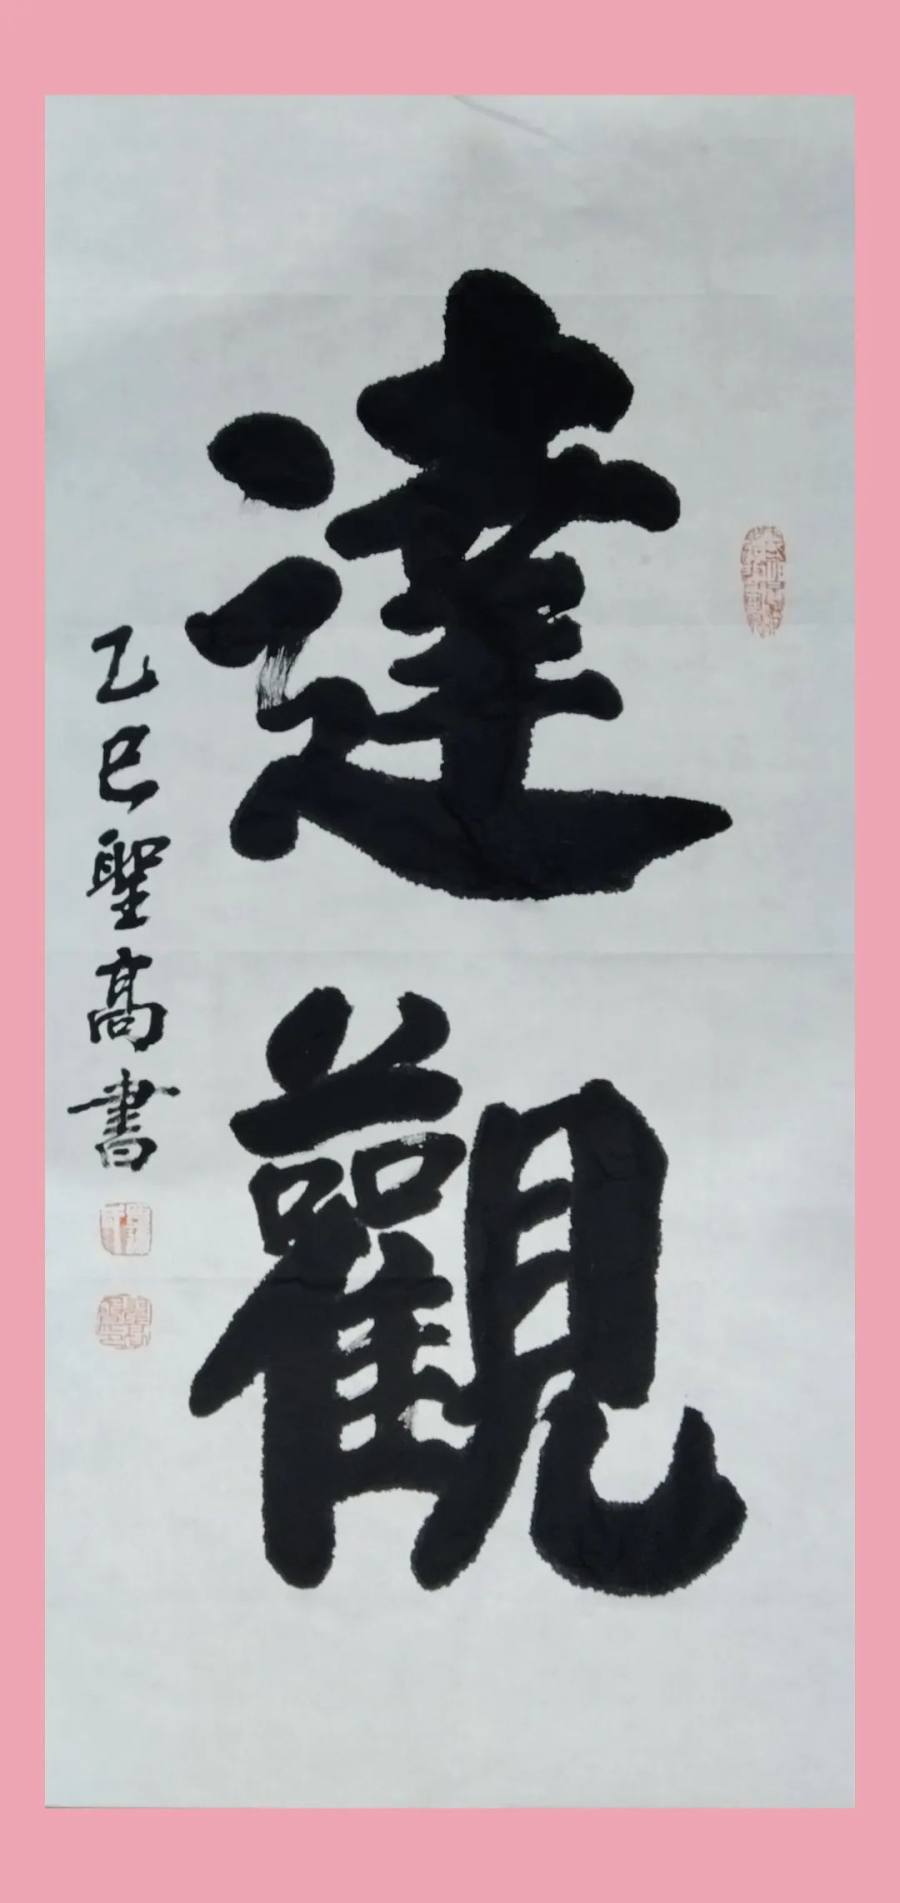 達觀
乙巳聖高書